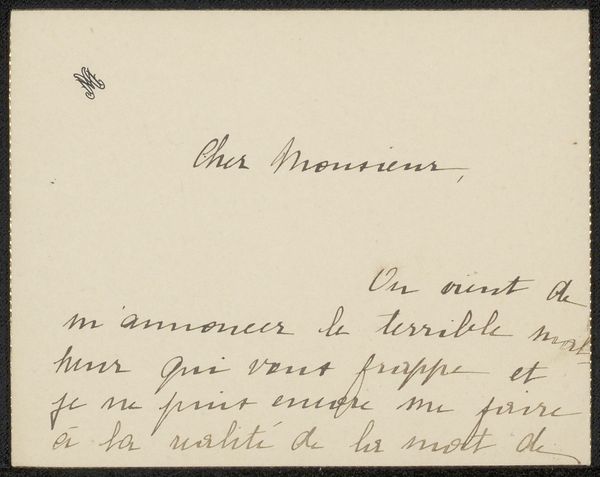 Cher Monsieur,
On vient de
m'annoncer le terrible mal-
heur qui vous frappe et
je ne puis encore me faire
à la réalité de la mort de